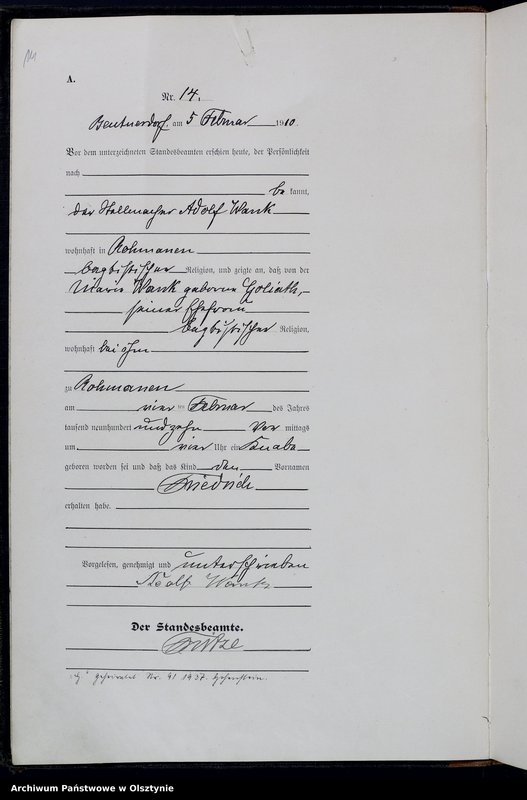 A.
Nr. 14.
Beutnerdorf, am 5 Februar 1910.
Vor dem unterzeichneten Standesbeamten erschien heute, der Persönlichkeit
nach
be kannt,
der Stellmacher Adolf Wank
wohnhaft in Rohmanen
baptistischer Religion, und zeigte an, daß von der
Marie Wank geborene Goliath,
seiner Ehefrau
baptistischer Religion,
wohnhaft bei ihm
zu Rohmanen
am vier ten Februar des Jahres
tausend neunhundert und zehn Vor mittags
um vier Uhr ein Knabe
geboren worden sei und daß das Kind den Vornamen
Friedrich
erhalten habe.
Vorgelesen, genehmigt und unterschrieben
Adolf Wank
Der Standesbeamte.
geheiratet Nr. 41 1937. Hohenstein.
Archiwum Państwowe w Olsztynie